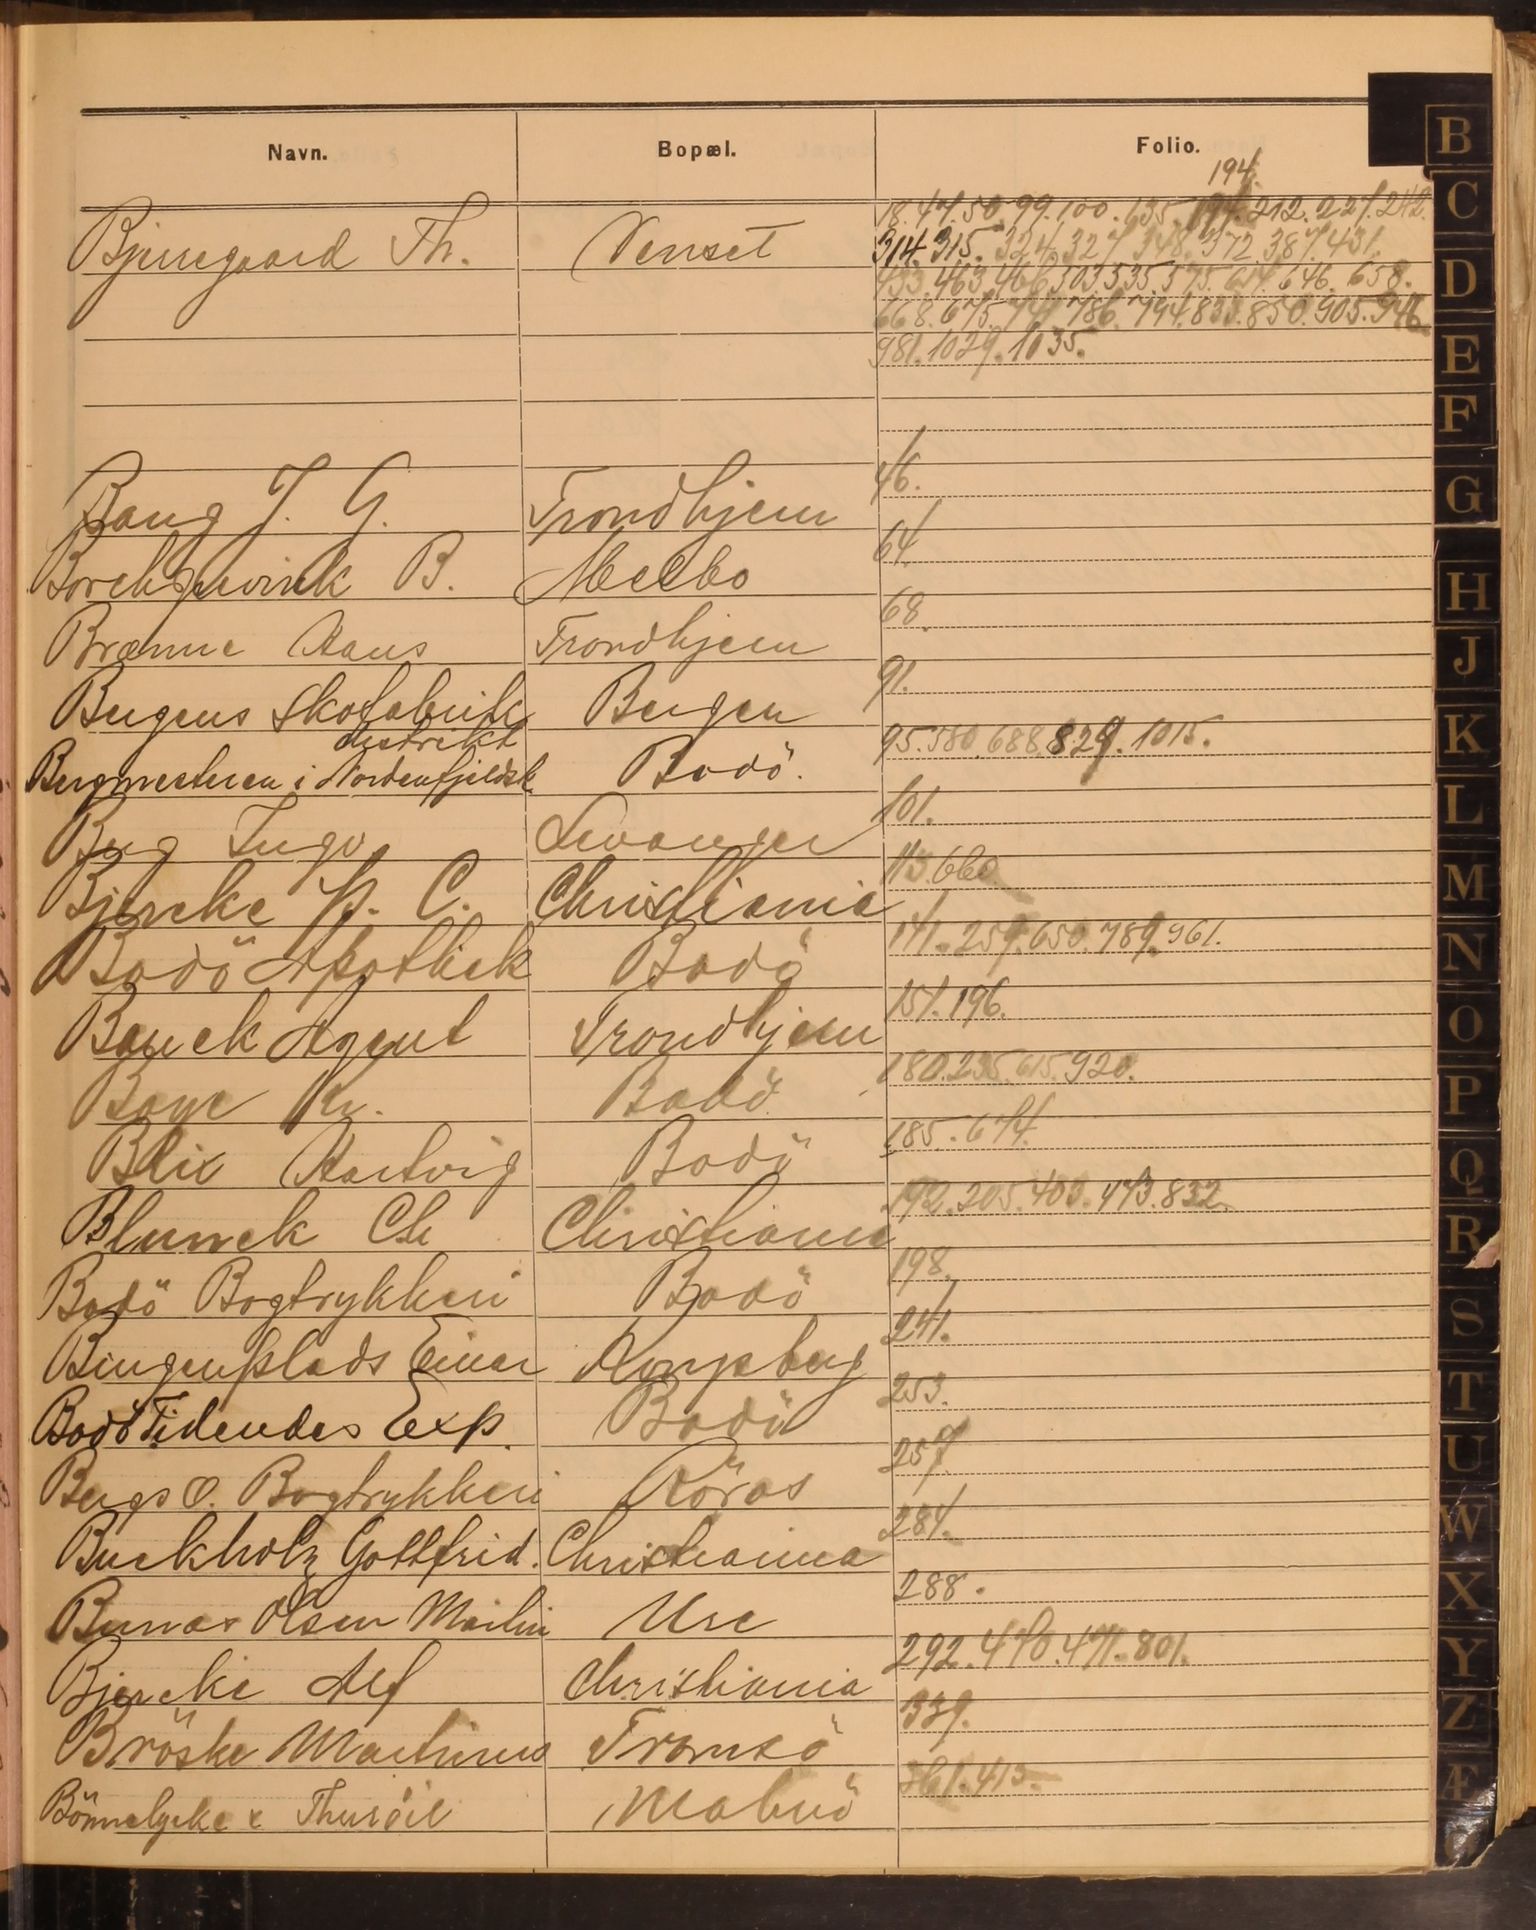 Navn. Bopæl. Folio.
194.
Bjerregaard Th. Venset 18.47.50.99.100.135.194.212.227.242.
314.315.324.327.348.372.387.431.
433.463.466.503.535.575.614.646.658.
668.675.741.786.794.833.850.905.946.
981.1029.1035.
Bang J. G. Trondhjem 46.
Borchgrevink B. Melbo 64.
Brænne Hans Trondhjem 68.
Bergens Skofabrik Bergen 91.
distrikt
Bergmesteren i Nordenfjeldsk. Bodö. 95.580.688.829.1015.
Berg Ingv. Levanger 101.
Bjercke P. C. Christiania 113.660.
Bodö Apothek Bodö 141.259.650.789.961.
Bauck Agent Trondhjem 151.196.
Boye Kr. Bodö 180.235.615.920.
Blix Hartvig Bodö 185.674.
Blunck Ch Christiania 192.205.403.473.832.
Bodö Bogtrykkeri Bodö 198.
Bingenplads Einar Kongsberg 241.
Bodö Tidendes Exp. Bodö 253.
Bergs O. Bogtrykkeri Röros 257.
Buckholz Gottfrid. Christiania 284.
Olsen Martin Ure 288.
Bjercke Alf Christiania 292.470.471.801.
Bröske Martinus Tromsö 339.
Bönnelycke & Thuröe Malmö 361.415.
B
C
D
E
F
G
H
J
K
L
M
N
O
P
Q
R
S
T
U
W
X
Y
Z
Æ